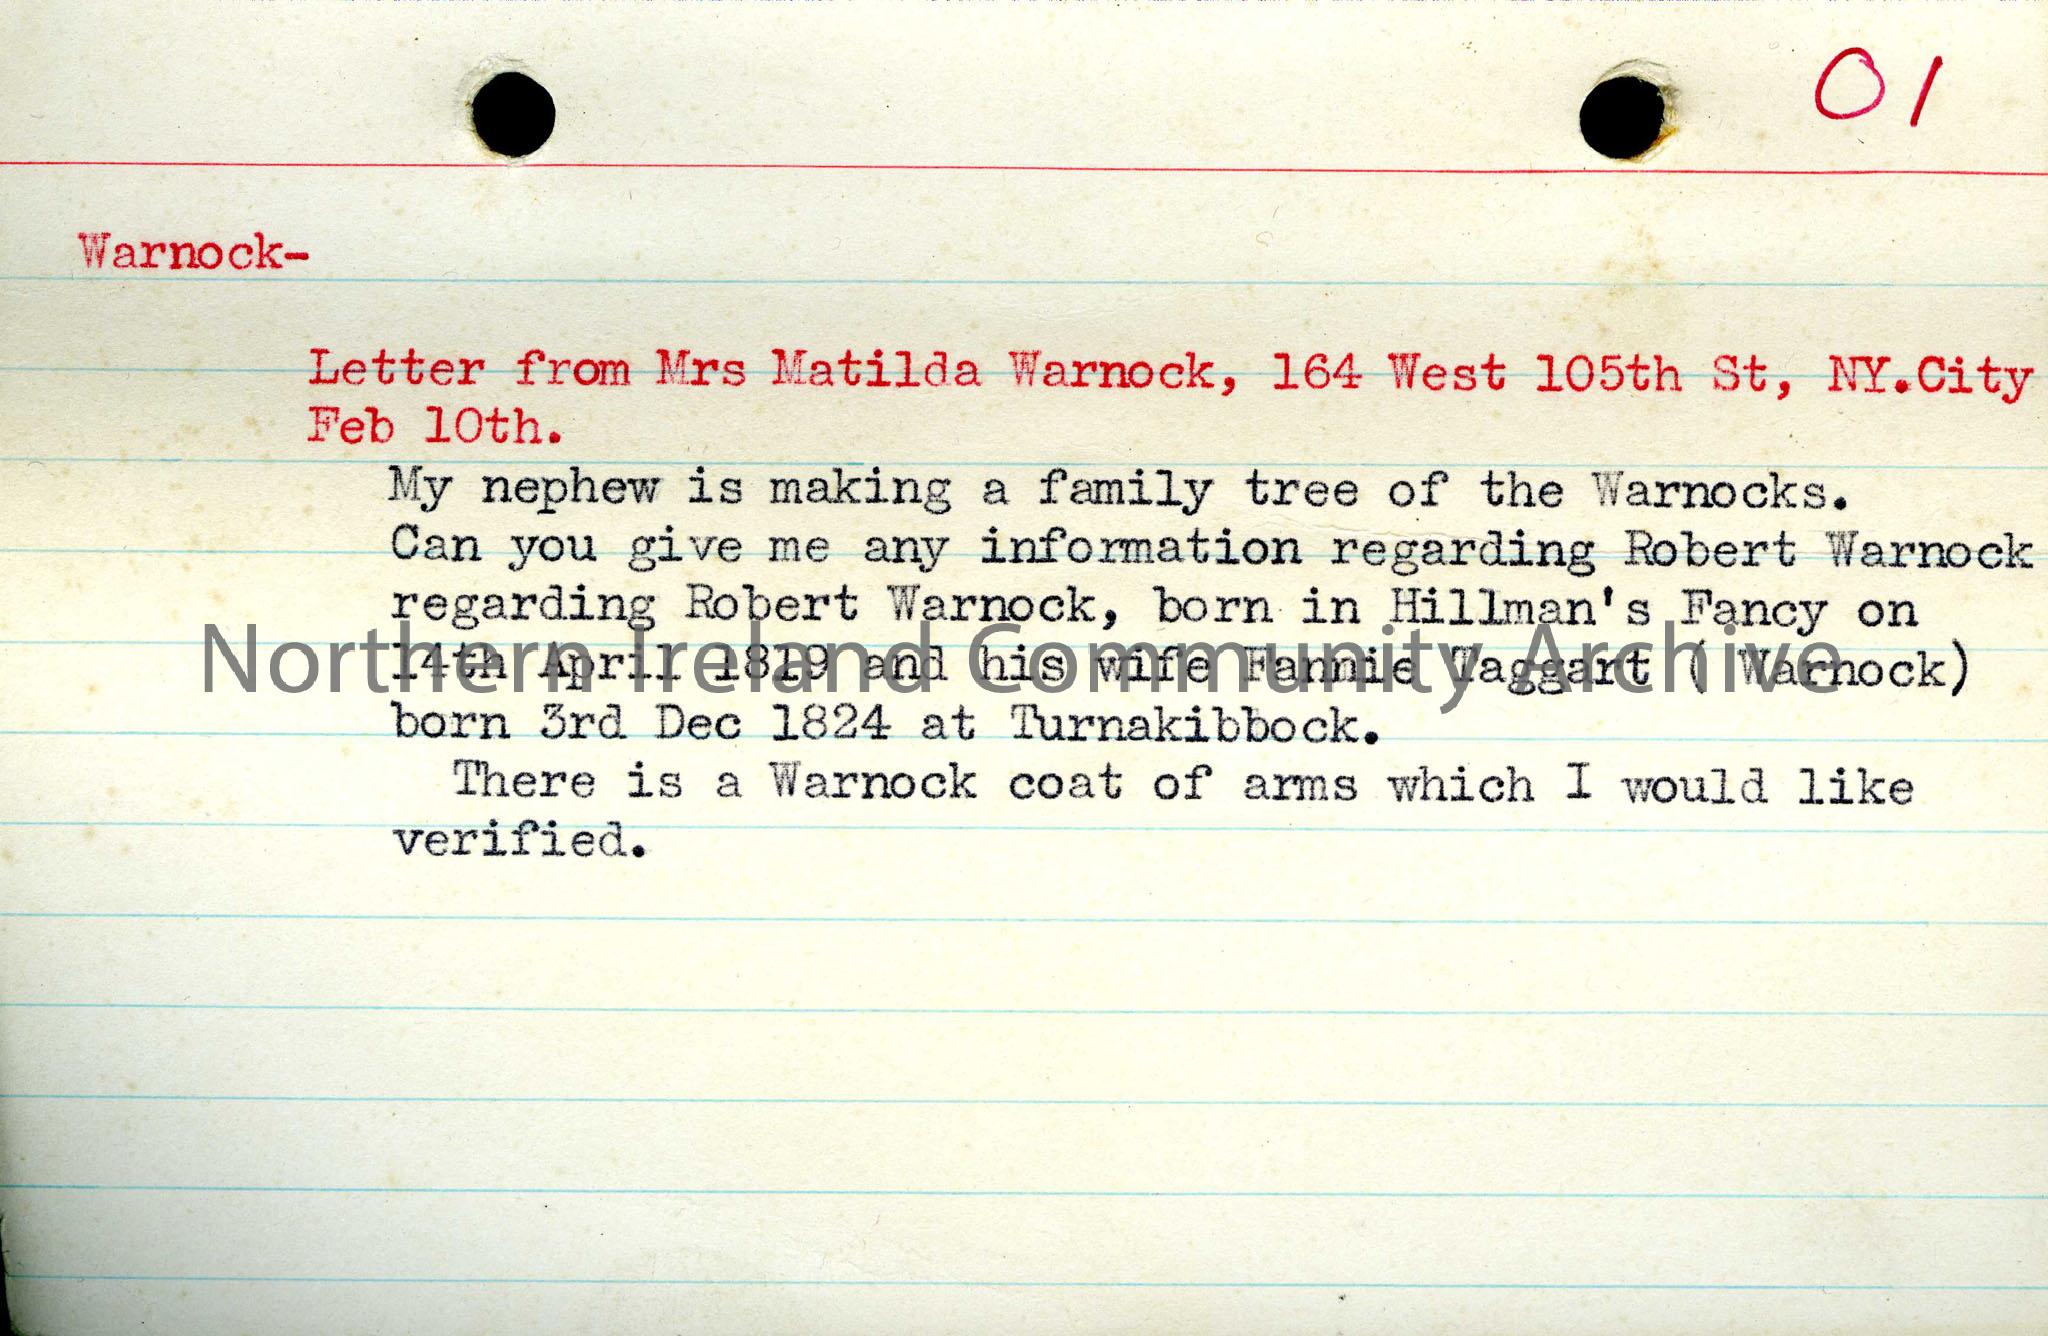 01
Warnock-
Letter from Mrs Matilda Warnock, 164 West 105th St, NY.City
Feb 10th.
My nephew is making a family tree of the Warnocks.
Can you give me any information regarding Robert Warnock
regarding Robert Warnock, born in Hillman's Fancy on
14th April 1819 and his wife Fannie Taggart ( Warnock)
Northern Ireland Community Archive
born 3rd Dec 1824 at Turnakibbock.
There is a Warnock coat of arms which I would like
verified.